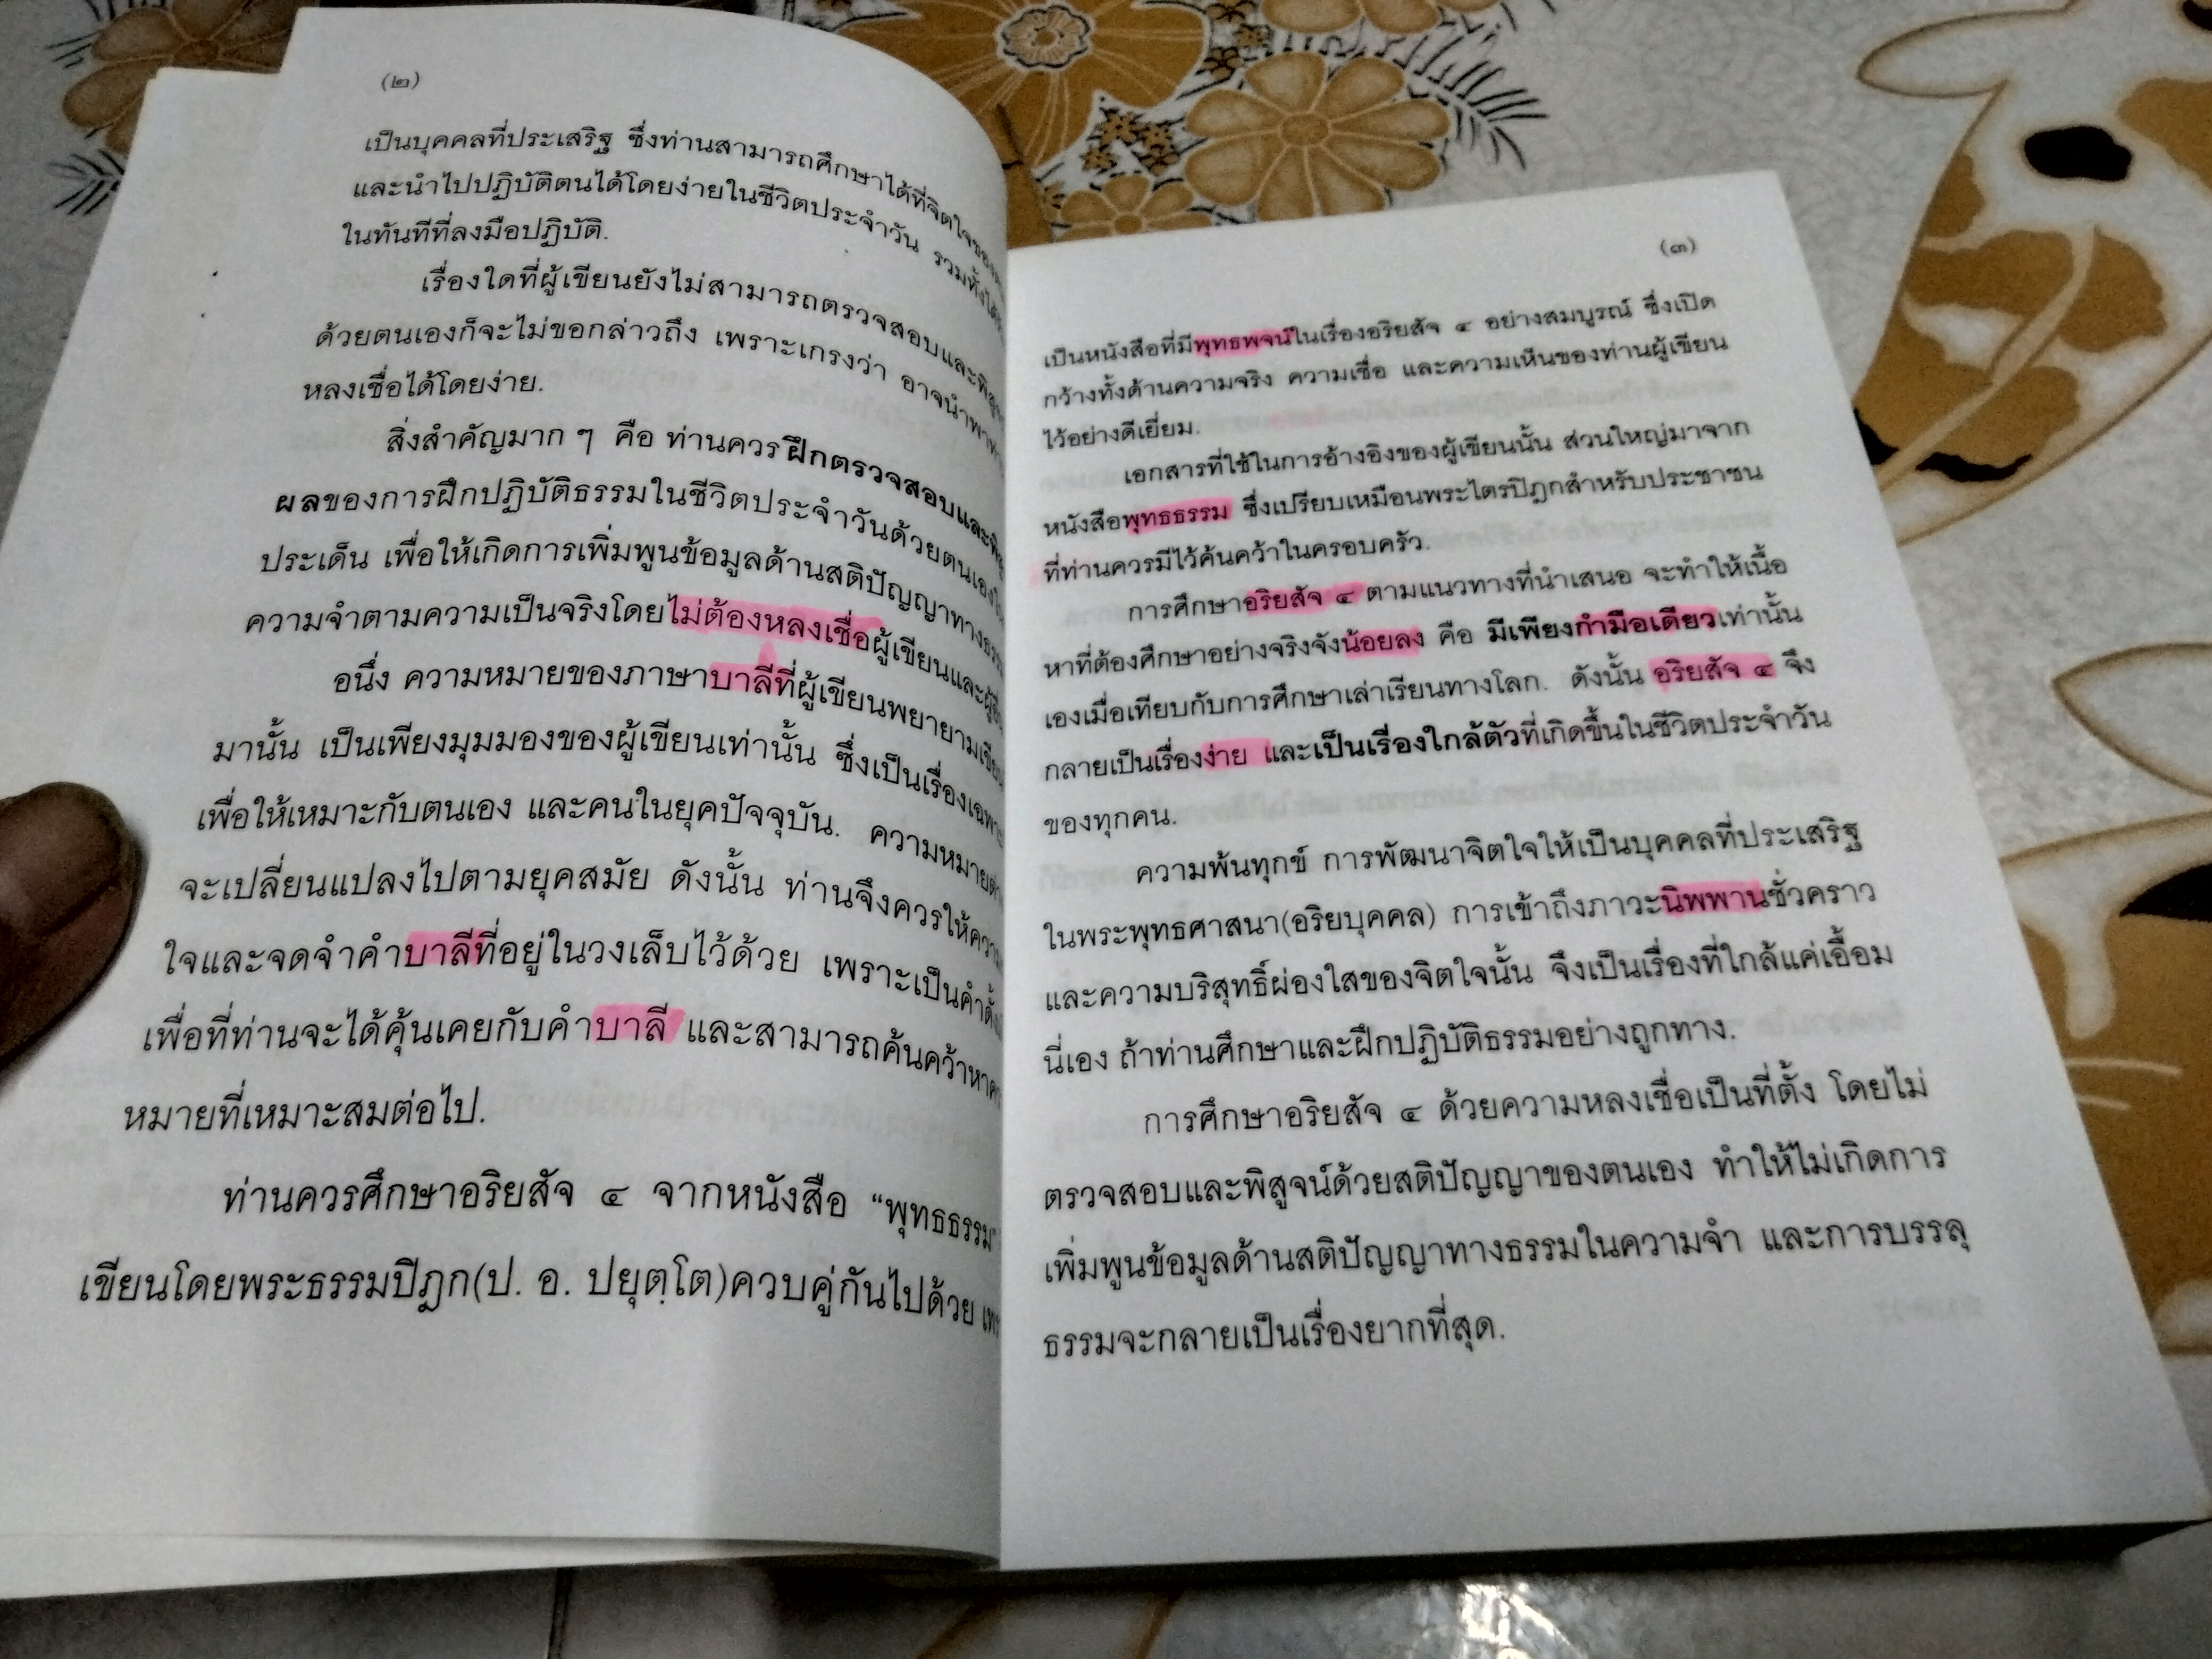 (๒)
เป็นบุคคลที่ประเสริฐ ซึ่งท่านสามารถศึกษาได้ที่จิตใจของ
และนำไปปฏิบัติตนได้โดยง่ายในชีวิตประจำวัน รวมทั้ง
ในทันทีที่ลงมือปฏิบัติ.
เรื่องใดที่ผู้เขียนยังไม่สามารถตรวจสอบและ
ด้วยตนเองก็จะไม่ขอกล่าวถึง เพราะเกรงว่า อาจนำพา
หลงเชื่อได้โดยง่าย.
สิ่งสำคัญมาก ๆ คือ ท่านควรฝึกตรวจสอบและ
ผลของการฝึกปฏิบัติธรรมในชีวิตประจำวันด้วยตนเอง
ประเด็น เพื่อให้เกิดการเพิ่มพูนข้อมูลด้านสติปัญญาทาง
ความจำตามความเป็นจริงโดยไม่ต้องหลงเชื่อผู้เขียนและ
อนึ่ง ความหมายของภาษาบาลีที่ผู้เขียนพยายาม
มานั้น เป็นเพียงมุมมองของผู้เขียนเท่านั้น ซึ่งเป็นเรื่อง
เพื่อให้เหมาะกับตนเอง และคนในยุคปัจจุบัน. ความหมาย
จะเปลี่ยนแปลงไปตามยุคสมัย ดังนั้น ท่านจึงควรให้
ใจและจดจำคำบาลีที่อยู่ในวงเล็บไว้ด้วย เพราะเป็นคำ
เพื่อที่ท่านจะได้คุ้นเคยกับคำบาลี และสามารถค้นคว้าหา
หมายที่เหมาะสมต่อไป.
ท่านควรศึกษาอริยสัจ ๔ จากหนังสือ “พุทธธรรม”
เขียนโดยพระธรรมปิฎก(ป. อ. ปยุตฺโต)ควบคู่กันไปด้วย
(๓)
เป็นหนังสือที่มีพุทธพจน์ในเรื่องอริยสัจ ๔ อย่างสมบูรณ์ ซึ่งเปิด
กว้างทั้งด้านความจริง ความเชื่อ และความเห็นของท่านผู้เขียน
ไว้อย่างดีเยี่ยม.
เอกสารที่ใช้ในการอ้างอิงของผู้เขียนนั้น ส่วนใหญ่มาจาก
หนังสือพุทธธรรม ซึ่งเปรียบเหมือนพระไตรปิฎกสำหรับประชาชน
ที่ท่านควรมีไว้ค้นคว้าในครอบครัว.
การศึกษาอริยสัจ ๔ ตามแนวทางที่นำเสนอ จะทำให้เนื้อ
หาที่ต้องศึกษาอย่างจริงจังน้อยลง คือ มีเพียงกำมือเดียวเท่านั้น
เองเมื่อเทียบกับการศึกษาเล่าเรียนทางโลก. ดังนั้น อริยสัจ ๔ จึง
กลายเป็นเรื่องง่าย และเป็นเรื่องใกล้ตัวที่เกิดขึ้นในชีวิตประจำวัน
ของทุกคน.
ความพ้นทุกข์ การพัฒนาจิตใจให้เป็นบุคคลที่ประเสริฐ
ในพระพุทธศาสนา(อริยบุคคล) การเข้าถึงภาวะนิพพานชั่วคราว
และความบริสุทธิ์ผ่องใสของจิตใจนั้น จึงเป็นเรื่องที่ใกล้แค่เอื้อม
นี่เอง ถ้าท่านศึกษาและฝึกปฏิบัติธรรมอย่างถูกทาง.
การศึกษาอริยสัจ ๔ ด้วยความหลงเชื่อเป็นที่ตั้ง โดยไม่
ตรวจสอบและพิสูจน์ด้วยสติปัญญาของตนเอง ทำให้ไม่เกิดการ
เพิ่มพูนข้อมูลด้านสติปัญญาทางธรรมในความจำ และการบรรลุ
ธรรมจะกลายเป็นเรื่องยากที่สุด.